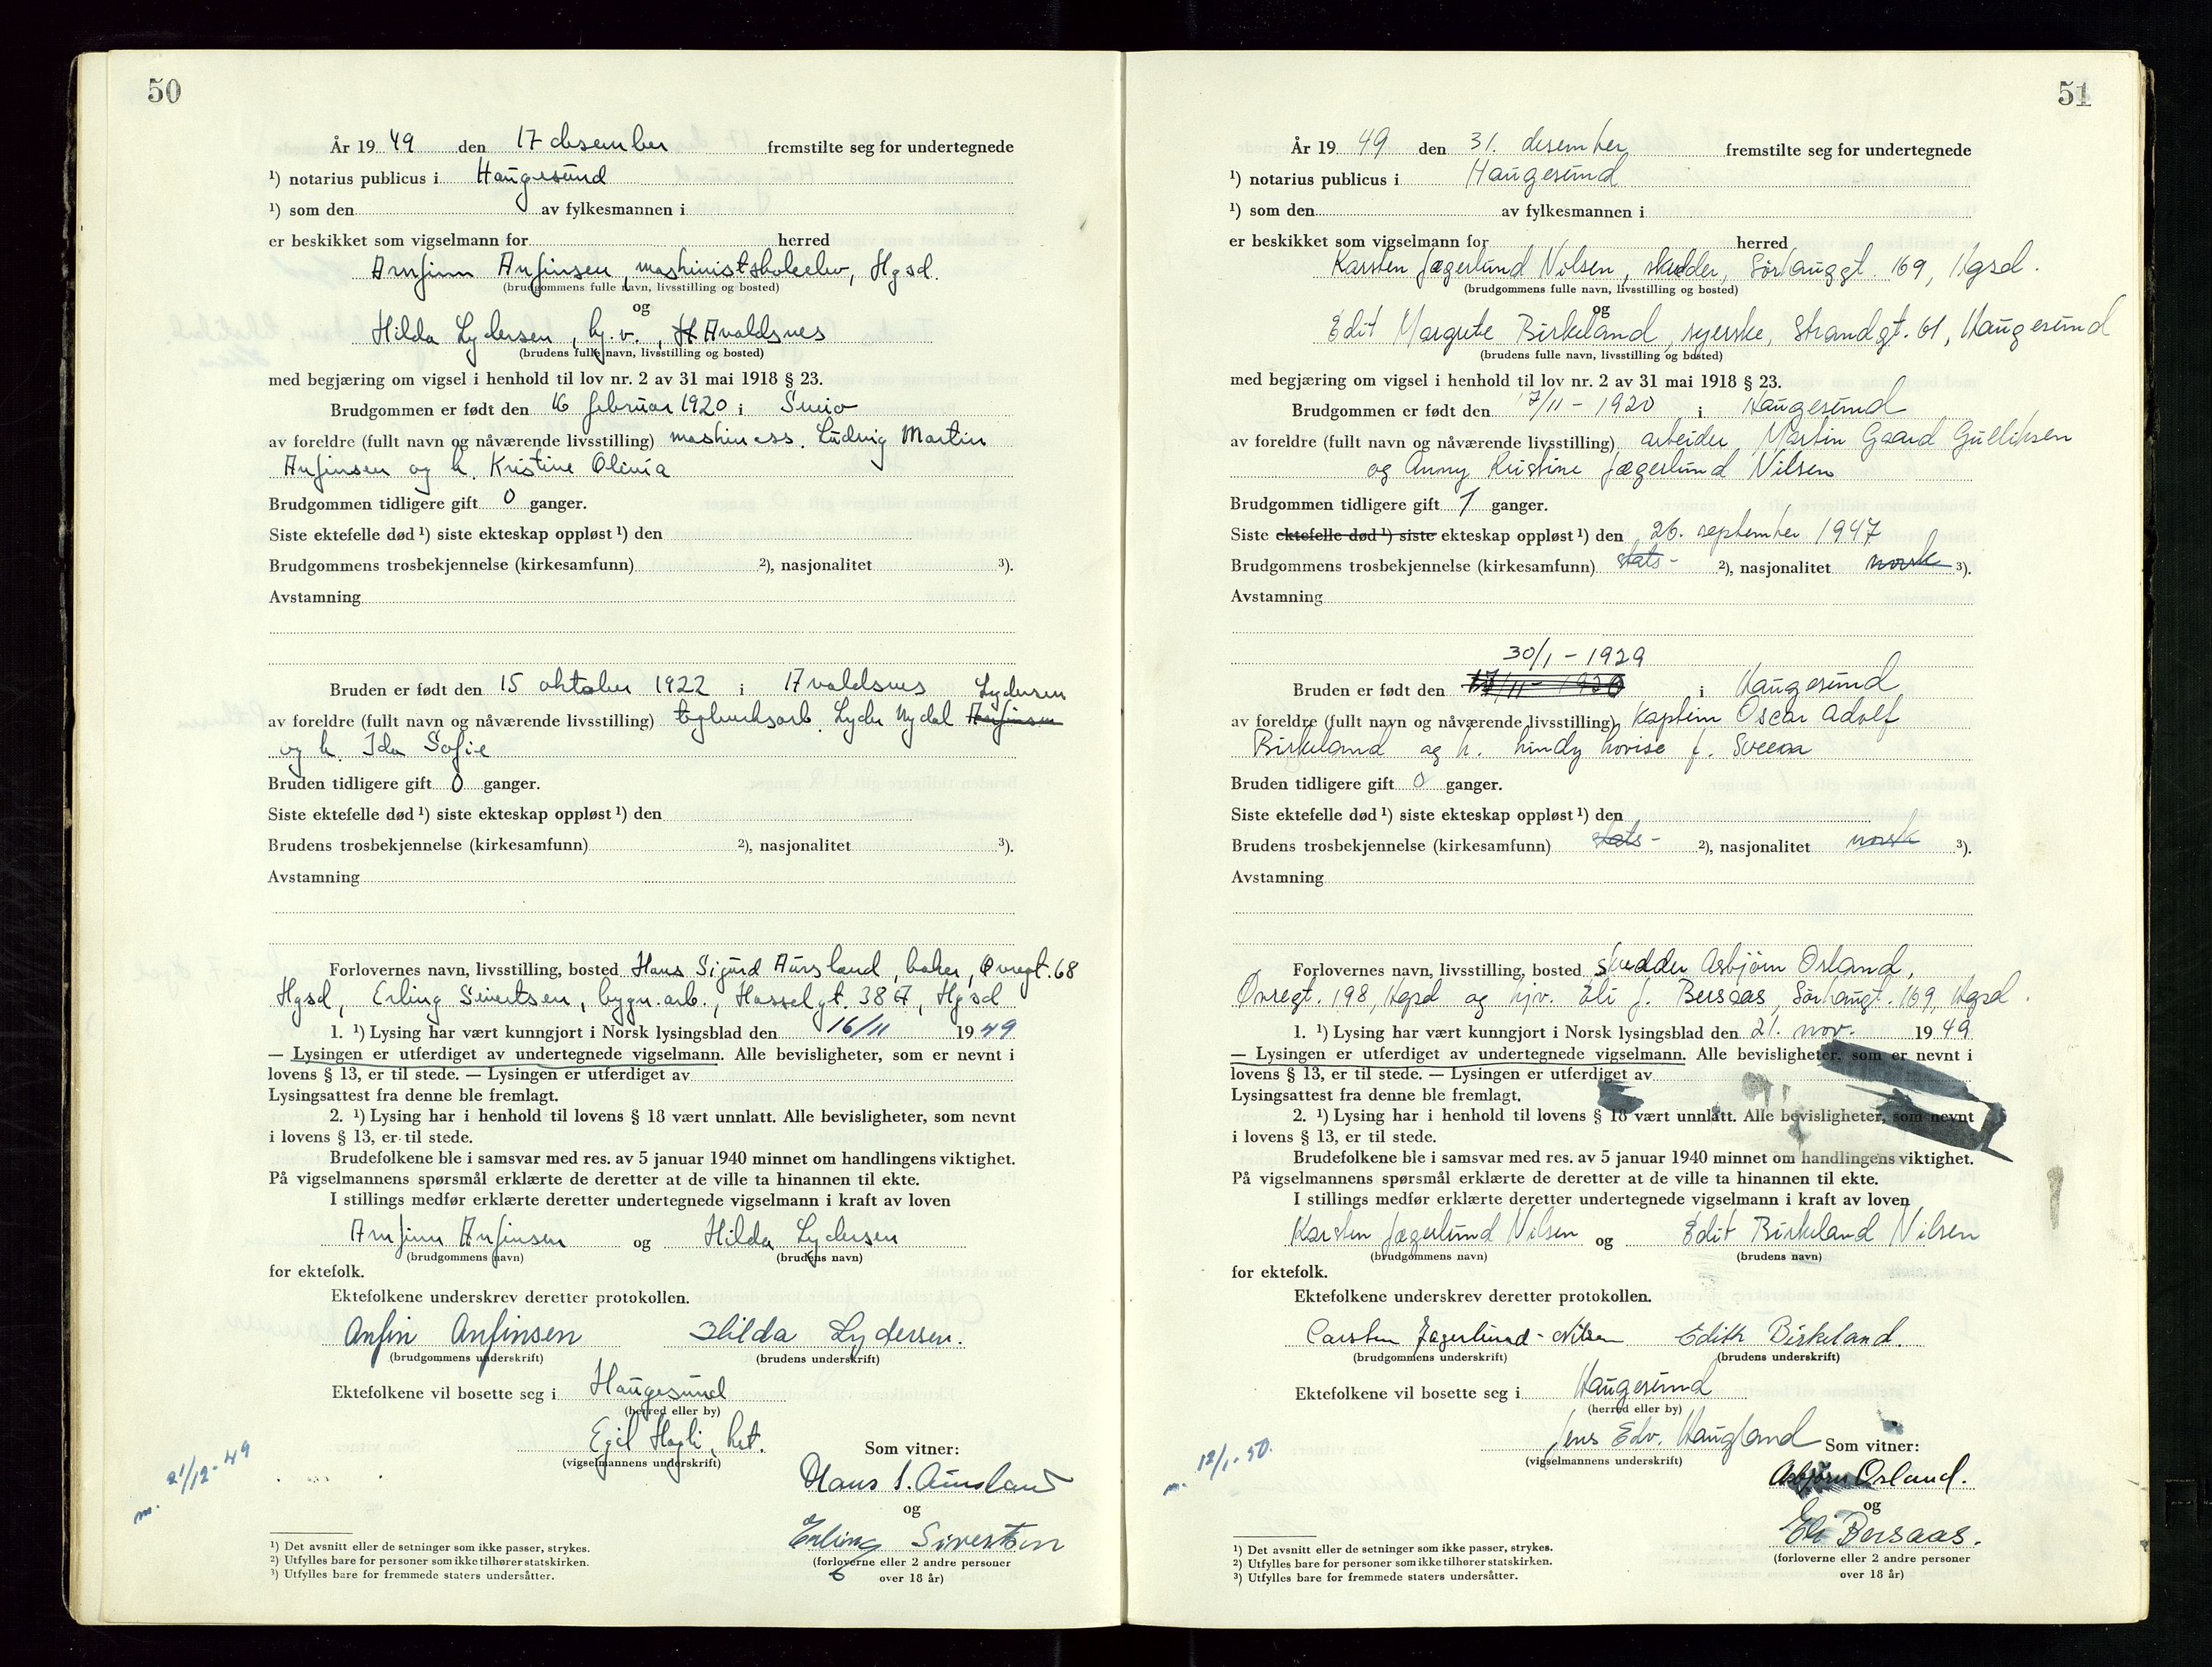 50
År 19 49 den 17 desember fremstilte seg for undertegnede
¹) notarius publicus i Haugesund
¹) som den av fylkesmannen i
er beskikket som vigselmann for herred
Arnfinn Anfinsen, maskinistskoleelev, Hgsd.
(brudgommens fulle navn, livsstilling og bosted)
og
Hilda Lydersen, hj.v., H Avaldsnes
(brudens fulle navn, livsstilling og bosted)
med begjæring om vigsel i henhold til lov nr. 2 av 31 mai 1918 § 23.
Brudgommen er født den 16 februar 1920 i
av foreldre (fullt navn og nåværende livsstilling) maskinass. Ludvig Martin
Anfinsen og h. Kristine Olivia
Brudgommen tidligere gift 0 ganger.
Siste ektefelle død ¹) siste ekteskap oppløst ¹) den
Brudgommens trosbekjennelse (kirkesamfunn) ²), nasjonalitet ³).
Avstamning
Bruden er født den 15 oktober 1922 i Avaldsnes Lydersen
av foreldre (fullt navn og nåværende livsstilling) teglverksarb. Lyder Nydal Anfinsen
og h. Ida Sofie
Bruden tidligere gift 0 ganger.
Siste ektefelle død ¹) siste ekteskap oppløst ¹) den
Brudens trosbekjennelse (kirkesamfunn) ²), nasjonalitet ³).
Avstamning
Forlovernes navn, livsstilling, bosted Hans Sigurd Aursland, baker, Øvregt. 68
Hgsd, Erling Sivertsen, bygn.arb., Hasselgt. 38 A, Hgsd
1. ¹) Lysing har vært kunngjort i Norsk lysingsblad den 16/11 19 49
— Lysingen er utferdiget av undertegnede vigselmann. Alle bevisligheter, som er nevnt i
lovens § 13, er til stede. — Lysingen er utferdiget av
Lysingsattest fra denne ble fremlagt.
2. ¹) Lysing har i henhold til lovens § 18 vært unnlatt. Alle bevisligheter, som nevnt
i lovens § 13, er til stede.
Brudefolkene ble i samsvar med res. av 5 januar 1940 minnet om handlingens viktighet.
På vigselmannens spørsmål erklærte de deretter at de ville ta hinannen til ekte.
I stillings medfør erklærte deretter undertegnede vigselmann i kraft av loven
Arnfinn Anfinsen og Hilda Lydersen
(brudgommens navn) (brudens navn)
for ektefolk.
Ektefolkene underskrev deretter protokollen.
Anfin Anfinsen Hilda Lydersen.
(brudgommens underskrift) (brudens underskrift)
Ektefolkene vil bosette seg i Haugesund
(herred eller by)
Egil Hagli, kst.
(vigselmannens underskrift)
Som vitner:
m. 21/12-49
Hans S. Aursland
og
Erling Sivertsen
(forloverne eller 2 andre personer
over 18 år)
¹) Det avsnitt eller de setninger som ikke passer, strykes.
²) Utfylles bare for personer som ikke tilhører statskirken.
³) Utfylles bare for fremmede staters undersåtter.
51
År 19 49 den 31. desember fremstilte seg for undertegnede
¹) notarius publicus i Haugesund
¹) som den av fylkesmannen i
er beskikket som vigselmann for herred
Karsten Jægerlund Nilsen, skredder, Sørhauggt. 169, Hgsd.
(brudgommens fulle navn, livsstilling og bosted)
og
Edit Margrete Birkeland, syerske, Strandgt. 61, Haugesund
(brudens fulle navn, livsstilling og bosted)
med begjæring om vigsel i henhold til lov nr. 2 av 31 mai 1918 § 23.
Brudgommen er født den 17/11 - 1920 i Haugesund
av foreldre (fullt navn og nåværende livsstilling) arbeider Martin Gaard Gulliksen
og Anny Kristine Jægerlund Nilsen
Brudgommen tidligere gift 1 ganger.
Siste ektefelle død ¹) siste ekteskap oppløst ¹) den 26. september 1947
Brudgommens trosbekjennelse (kirkesamfunn) stats- ²), nasjonalitet norsk ³).
Avstamning
30/1 - 1929
Bruden er født den 17/11 - 1920 i Haugesund
av foreldre (fullt navn og nåværende livsstilling) kaptein Oscar Adolf
Birkeland og h. Lindy Lovise f. Sveen
Bruden tidligere gift 0 ganger.
Siste ektefelle død ¹) siste ekteskap oppløst ¹) den
Brudens trosbekjennelse (kirkesamfunn) stats- ²), nasjonalitet norsk ³).
Avstamning
Forlovernes navn, livsstilling, bosted skredder Asbjørn Ørland,
Øvregt. 198, Hgsd og hjv. Eli J. Bersaas, Sørhaugt. 169, Hgsd.
1. ¹) Lysing har vært kunngjort i Norsk lysingsblad den 21. nov. 19 49
— Lysingen er utferdiget av undertegnede vigselmann. Alle bevisligheter, som er nevnt i
lovens § 13, er til stede. — Lysingen er utferdiget av
Lysingsattest fra denne ble fremlagt.
2. ¹) Lysing har i henhold til lovens § 18 vært unnlatt. Alle bevisligheter, som nevnt
i lovens § 13, er til stede.
Brudefolkene ble i samsvar med res. av 5 januar 1940 minnet om handlingens viktighet.
På vigselmannens spørsmål erklærte de deretter at de ville ta hinannen til ekte.
I stillings medfør erklærte deretter undertegnede vigselmann i kraft av loven
Karsten Jægerlund Nilsen og Edit Birkeland Nilsen
(brudgommens navn) (brudens navn)
for ektefolk.
Ektefolkene underskrev deretter protokollen.
Carsten Jægerlund-Nilsen Edith Birkeland.
(brudgommens underskrift) (brudens underskrift)
Ektefolkene vil bosette seg i Haugesund
(herred eller by)
Jens Edv. Haugland
(vigselmannens underskrift)
Som vitner:
m. 12/1-50.
Asbjørn Ørland.
og
Eli Bersaas.
(forloverne eller 2 andre personer
over 18 år)
¹) Det avsnitt eller de setninger som ikke passer, strykes.
²) Utfylles bare for personer som ikke tilhører statskirken.
³) Utfylles bare for fremmede staters undersåtter.